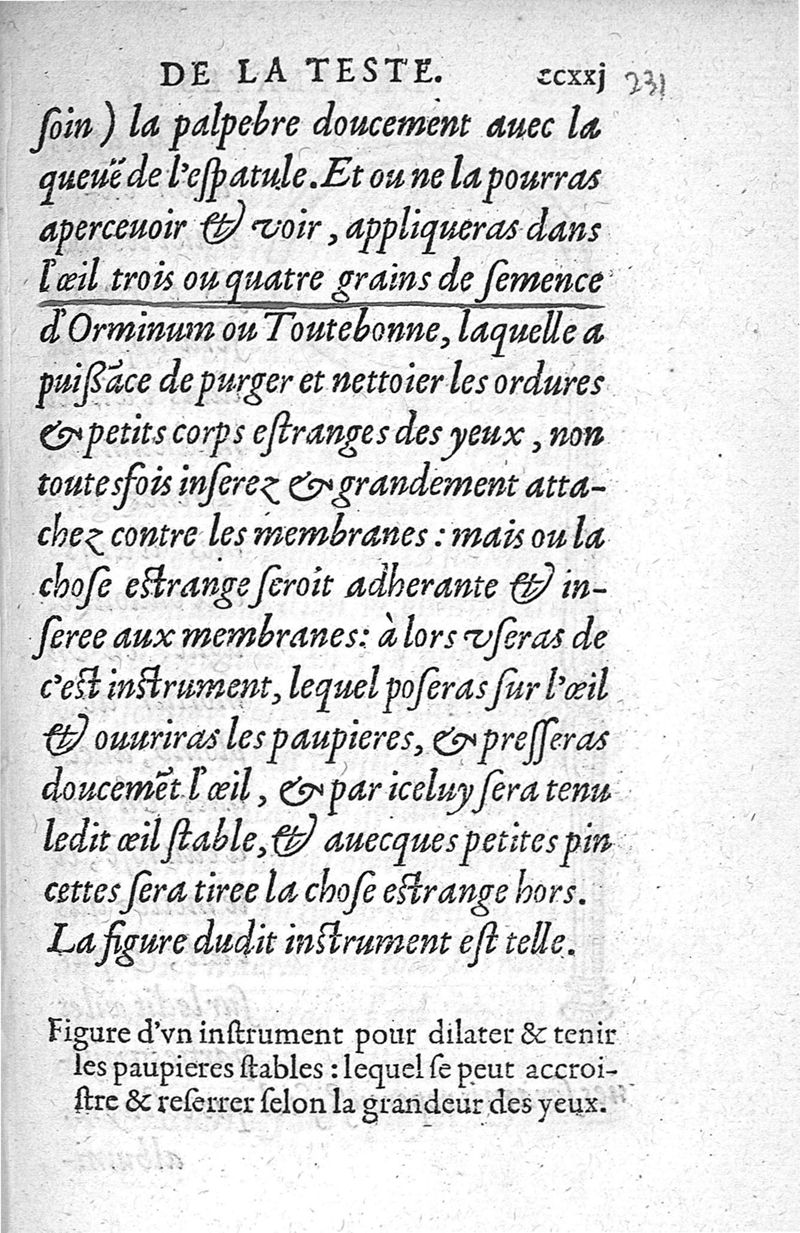 DE LA TESTE. ccxxj 231
ſoin ) la palpebre doucement auec la
queuë de l'eſpatule. Et ou ne la pourras
aperceuoir & voir, appliqueras dans
l'œil trois ou quatre grains de ſemence
d'Orminum ou Toutebonne, laquelle a
puiſsāce de purger et nettoier les ordures
& petits corps eſtranges des yeux, non
toutesfois inſerez & grandement atta-
chez contre les membranes : mais ou la
choſe eſtrange ſeroit adherante & in-
ſeree aux membranes: à lors vſeras de
c'eſt inſtrument, lequel poſeras ſur l'œil
& ouuriras les paupieres, & preſſeras
doucemēt l'œil, & par iceluy ſera tenu
ledit œil ſtable, & auecques petites pin
cettes ſera tiree la choſe eſtrange hors.
La figure dudit inſtrument eſt telle.
Figure d'vn inſtrument pour dilater & tenir
les paupieres ſtables : lequel ſe peut accroi-
ſtre & reſerrer ſelon la grandeur des yeux.